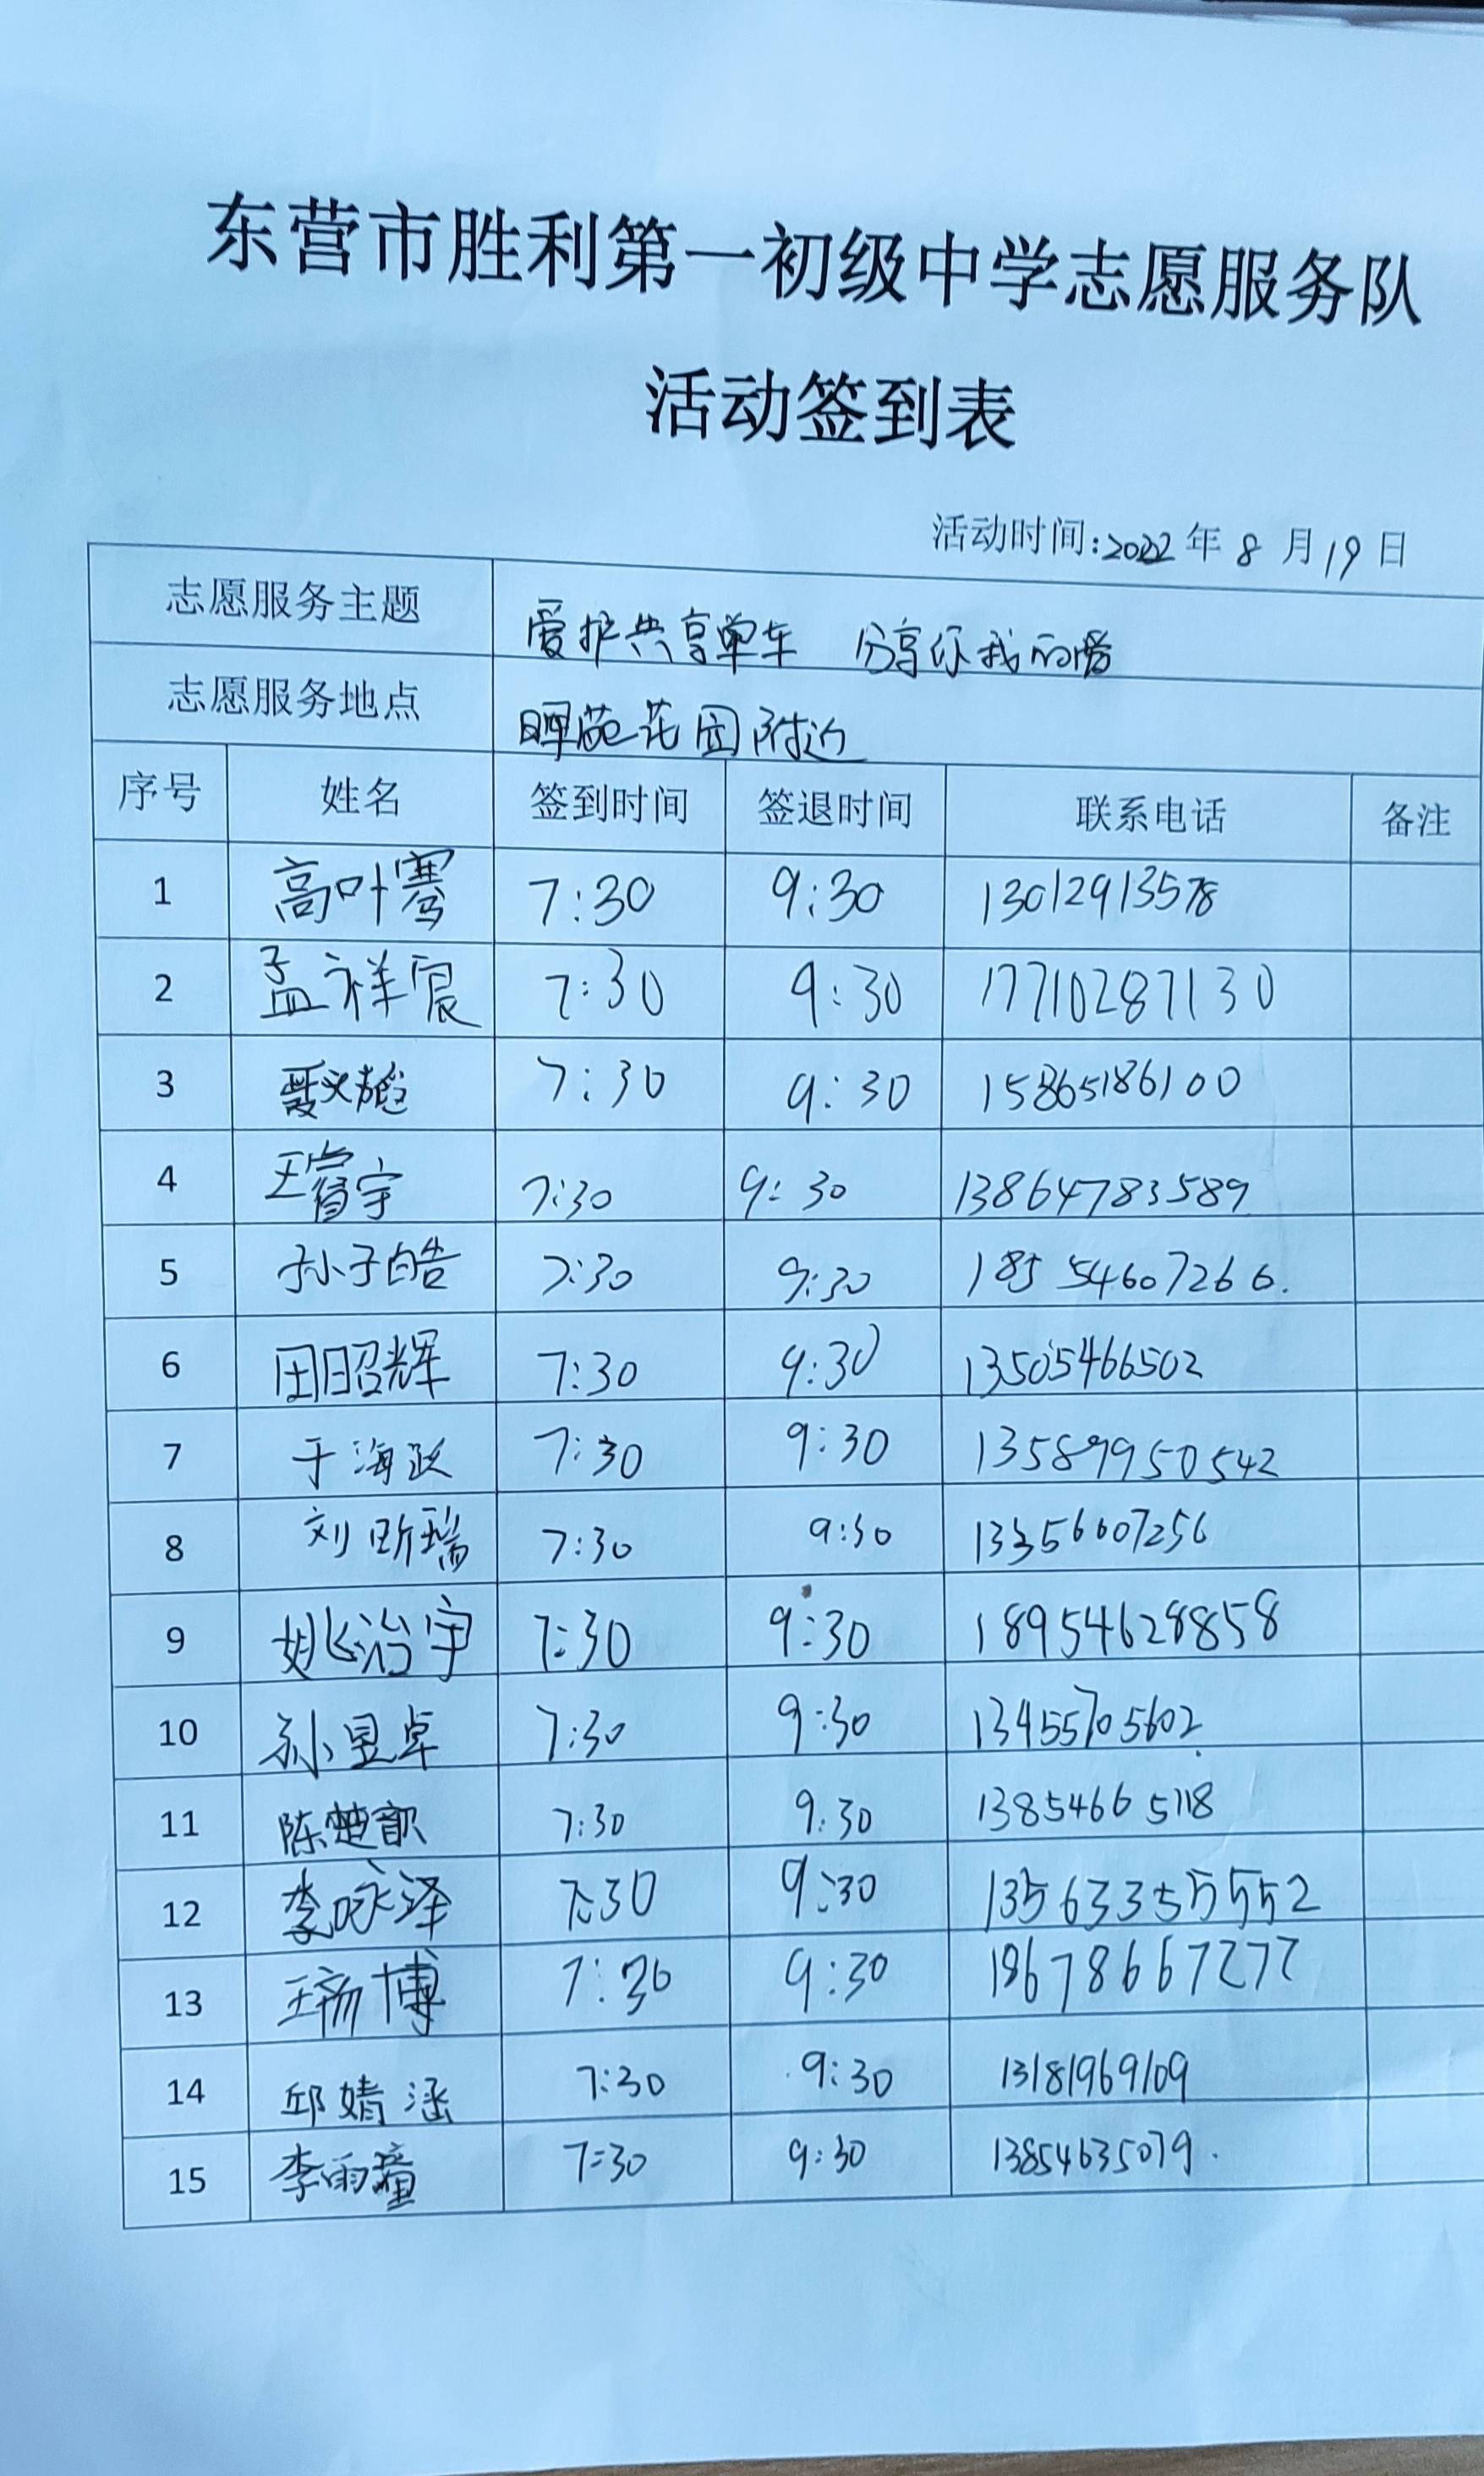 东营市胜利第一初级中学志愿服务队
活动签到表
活动时间:2022年8月19日
志愿服务主题 爱护共享单车 分享你我的爱
志愿服务地点 晖苑花园附近
序号 姓名 签到时间 签退时间 联系电话 备注
1 高叶骞 7:30 9:30 13012913578
2 孟祥宸 7:30 9:30 17710287130
3 7:30 9:30 15865186100
4 王睿宇 7:30 9:30 13864783589
5 孙子皓 7:30 9:30 18554607266.
6 田昭辉 7:30 9:30 13505466502
7 于海跃 7:30 9:30 13589950542
8 刘昕瑞 7:30 9:30 13356607256
9 姚治宇 7:30 9:30 18954628858
10 孙昱卓 7:30 9:30 13455705602
11 陈楚歆 7:30 9:30 13854665118
12 李咏泽 7:30 9:30 13563355552
13 博 7:30 9:30 18678667277
14 邱婧涵 7:30 9:30 13181969109
15 李雨瞳 7:30 9:30 13854635079.